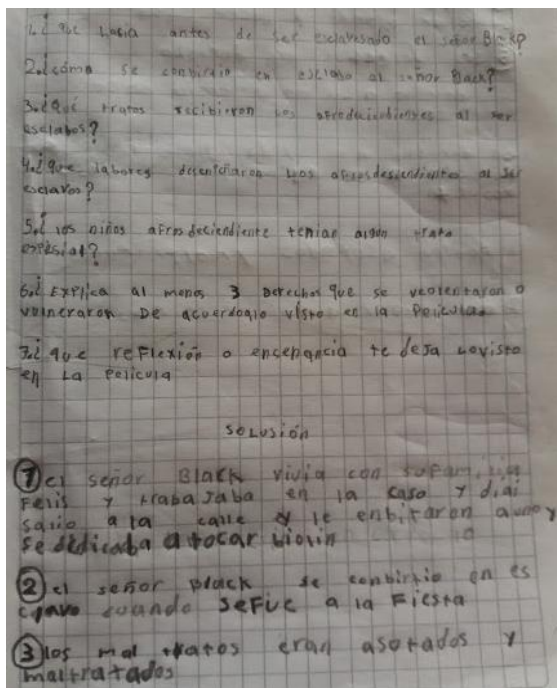 1.¿ que hacia antes de ser esclavesado el señor Black?
2.¿cómo se conbirtio en esclabo al señor Back?
3.¿qué tratos recibieron los afrodecindientes al ser
esclabos?
4.¿que labores los afrosdesiendientes al ser
esclavos?
5.¿ los niños afrosdeciendiente tenian algun trato
espesial?
6.¿ Explica al monos 3 Derechos que se veolentaron o
vulneraron De acuerdoalo visto en la Peliculas
7.¿ que reflexión o ensenancia te desa lovisto
en La pelicula
solusión
1 el señor Black vivia con sufamilia
Felis y trabasaba en la caso y diai
salio a la calle y le enbitaron a uno y
se dedicaba a tocar biolin
2 el señor black se conbirtio en es
clavo cuando seFue a la Fiesta
3 los mal tratos eran asotados y
maltratados